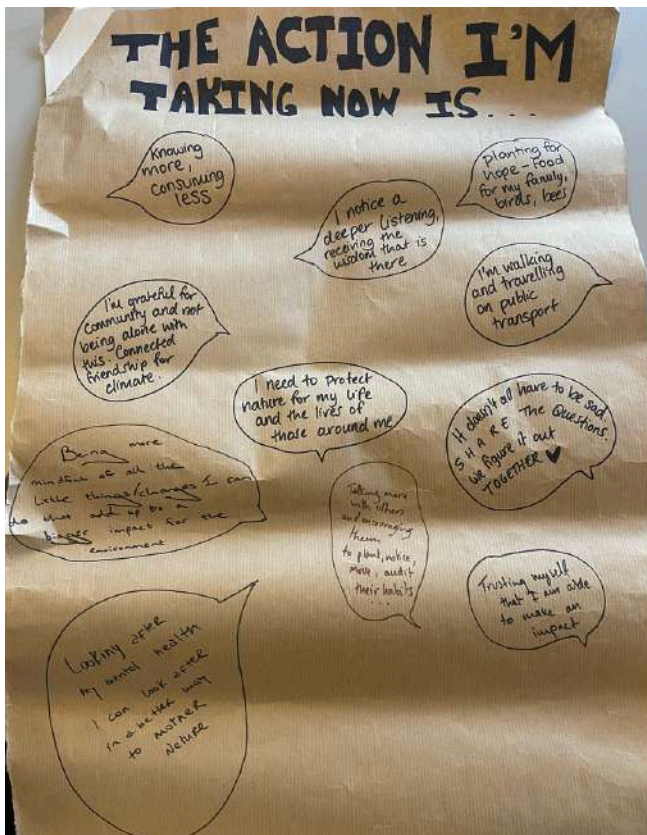 THE ACTION I'M
TAKING NOW IS...
Knowing
more,
consuming
less
planting for
hope - Food
for my family,
birds, bees
I notice a
deeper listening,
receiving the
wisdom that is
there
I'm walking
and travelling
on public
transport
I'm grateful for
community and not
being alone with
this. Connected
friendship for
climate.
I need to protect
nature for my life
and the lives of
those around me
It doesn't all have to be sad
SHARE The Questions.
we figure it out
TOGETHER ♥
Being more
mindful of all the
little things/changes I can
do that add up to a
bigger impact for the
environment
Talking more
with others
and encouraging
them
to plant, notice,
move, audit
their habits
...
Trusting myself
that I am able
to make an
impact
Looking after
my mental health
I can look after
in a better way
to mother
Nature